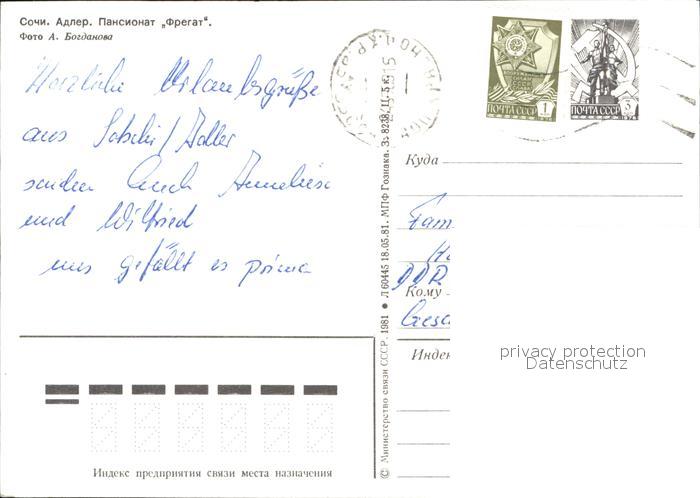 Сочи. Адлер. Пансионат „Фрегат“.
Фото А. Богданова
Herzliche Urlaubsgrüße
aus Sotschi/Adler
senden Euch Anneliese
und Wilfried
uns gefällt es prima
ПОЧТА СССР 1
ПОЧТА СССР 3
Куда
Fam
DDR
Кому
Индек
© Министерство связи СССР. 1981 ● Л 60445 18.05.81. МПФ Гознака. Зз 8238. Ц. 5 к.
privacy protection
Datenschutz
Индекс предприятия связи места назначения